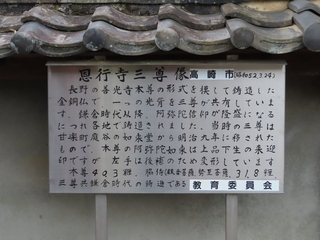 恩行寺三尊像 高崎市(昭和52.3.24)
長野の善光寺本尊の形式を模して鋳造した
金銅仏で、一つの光背を三尊が共有していま
す。鎌倉時代以降、阿弥陀信仰が隆盛になる
につれ各地で鋳造されました。当時の三尊は
甘味町庭谷の如来堂から明治九年に移された
もので、本尊の阿弥陀如来は上品下生の来迎
印ですが左手は後補のため変形しています
本尊49.3糎、脇侍(観音菩薩、勢至菩薩)31.8糎
三尊共鎌倉時代の鋳造である
教育委員会